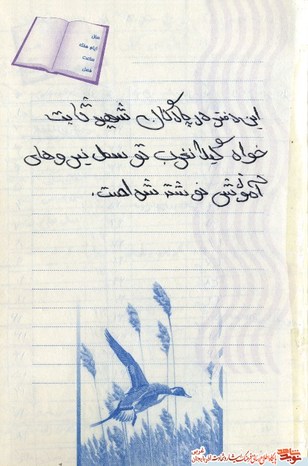 سال
ایام هفته
ساعت
فصل
این دفتر در پادگان شهید ثابت
خواه گیلانغرب توسط نیروهای
آموزش نوشته شده است.